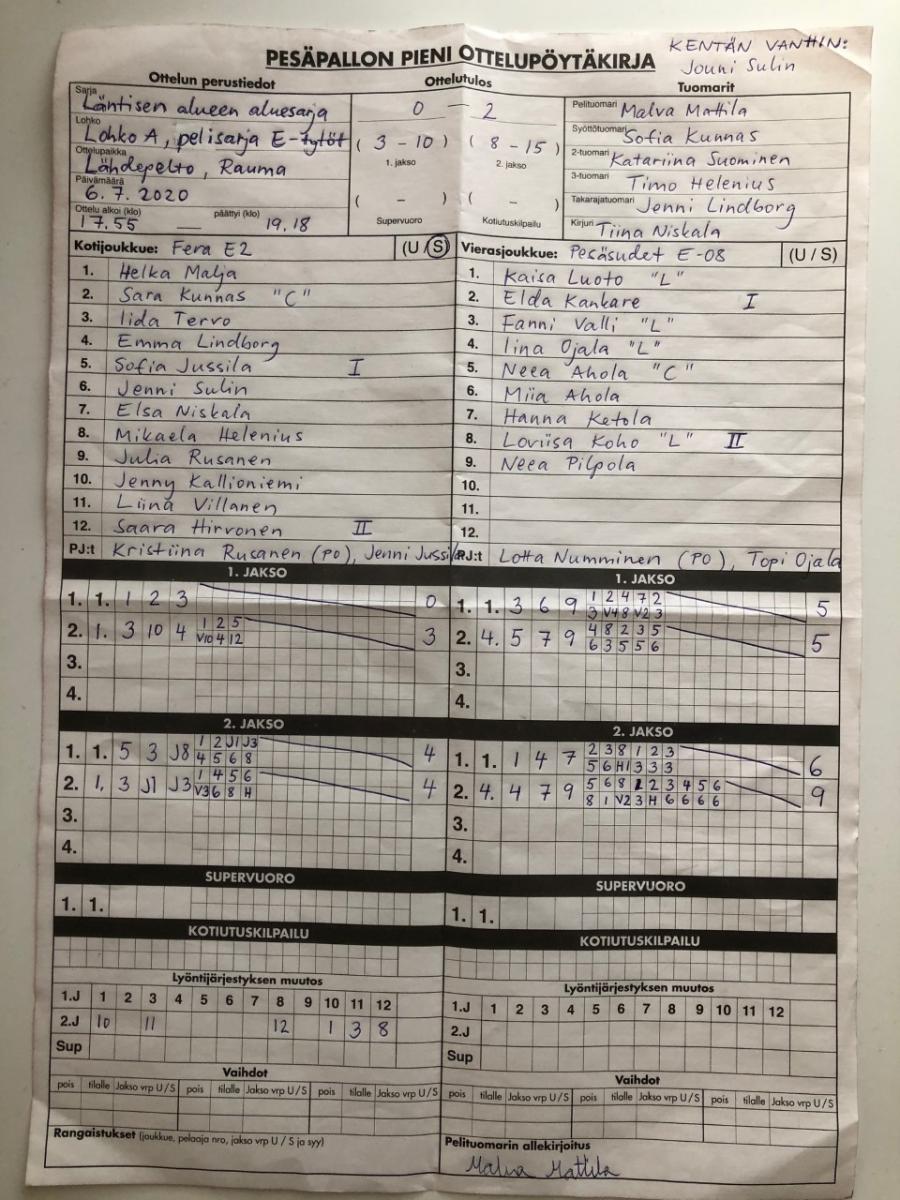 KENTÄN VANHIN:
Jouni Sulin
PESÄPALLON PIENI OTTELUPÖYTÄKIRJA
Ottelun perustiedot
Ottelutulos
Tuomarit
Sarja Läntisen alueen aluesarja
0 — 2
Pelituomari Malva Mattila
Lohko Lohko A, pelisarja E-tytöt
( 3 - 10 ) ( 8 - 15 )
1. jakso 2. jakso
Syöttötuomari Sofia Kunnas
Ottelupaikka Lähdepelto, Rauma
2-tuomari Katariina Suominen
Päivämäärä 6.7.2020
3-tuomari Timo Helenius
( - ) ( - )
Supervuoro Kotiutuskilpailu
Takarajatuomari Jenni Lindborg
Ottelu alkoi (klo) 17.55 — päättyi (klo) 19.18
Kirjuri Tiina Niskala
Kotijoukkue: Fera E2 (U/S)
Vierasjoukkue: Pesäsudet E-08 (U / S)
1. Helka Malja
2. Sara Kunnas "C"
3. Iida Tervo
4. Emma Lindborg
5. Sofia Jussila I
6. Jenni Sulin
7. Elsa Niskala
8. Mikaela Helenius
9. Julia Rusanen
10. Jenny Kallioniemi
11. Liina Villanen
12. Saara Hirvonen II
PJ:t Kristiina Rusanen (PO), Jenni Jussila
1. Kaisa Luoto "L"
2. Elda Kankare I
3. Fanni Valli "L"
4. Iina Ojala "L"
5. Neea Ahola "C"
6. Miia Ahola
7. Hanna Ketola
8. Loviisa Koho "L" II
9. Neea Pilpola
10.
11.
12.
PJ:t Lotta Numminen (PO), Topi Ojala
1. JAKSO
1. 1. 1 2 3 0
2. 1. 3 10 4 1 2 5 3
V10 4 12
3.
4.
1. JAKSO
1. 1. 3 6 9 1 2 4 7 2 5
3 V4 8 V2 3
2. 4. 5 7 9 4 8 2 3 5 5
6 3 5 5 6
3.
4.
2. JAKSO
1. 1. 5 3 J8 1 2 J1 J3 4
4 5 6 8
2. 1. 3 J1 J3 1 4 5 6 4
V3 6 8 H
3.
4.
2. JAKSO
1. 1. 1 4 7 2 3 8 1 2 3 6
5 6 H1 3 3 3
2. 4. 4 7 9 5 6 8 1 2 3 4 5 6 9
8 1 V2 3 H 6 6 6 6
3.
4.
SUPERVUORO
1. 1.
SUPERVUORO
1. 1.
KOTIUTUSKILPAILU
KOTIUTUSKILPAILU
Lyöntijärjestyksen muutos
1.J 1 2 3 4 5 6 7 8 9 10 11 12
2.J 10 11 12 1 3 8
Sup
Lyöntijärjestyksen muutos
1.J 1 2 3 4 5 6 7 8 9 10 11 12
2.J
Sup
Vaihdot
pois tilalle Jakso vrp U/S pois tilalle Jakso vrp U/S pois tilalle Jakso vrp U/S
Vaihdot
pois tilalle Jakso vrp U/S pois tilalle Jakso vrp U/S pois tilalle Jakso vrp U/S
Rangaistukset (joukkue, pelaaja nro, jakso vrp U / S ja syy)
Pelituomarin allekirjoitus
Malva Mattila